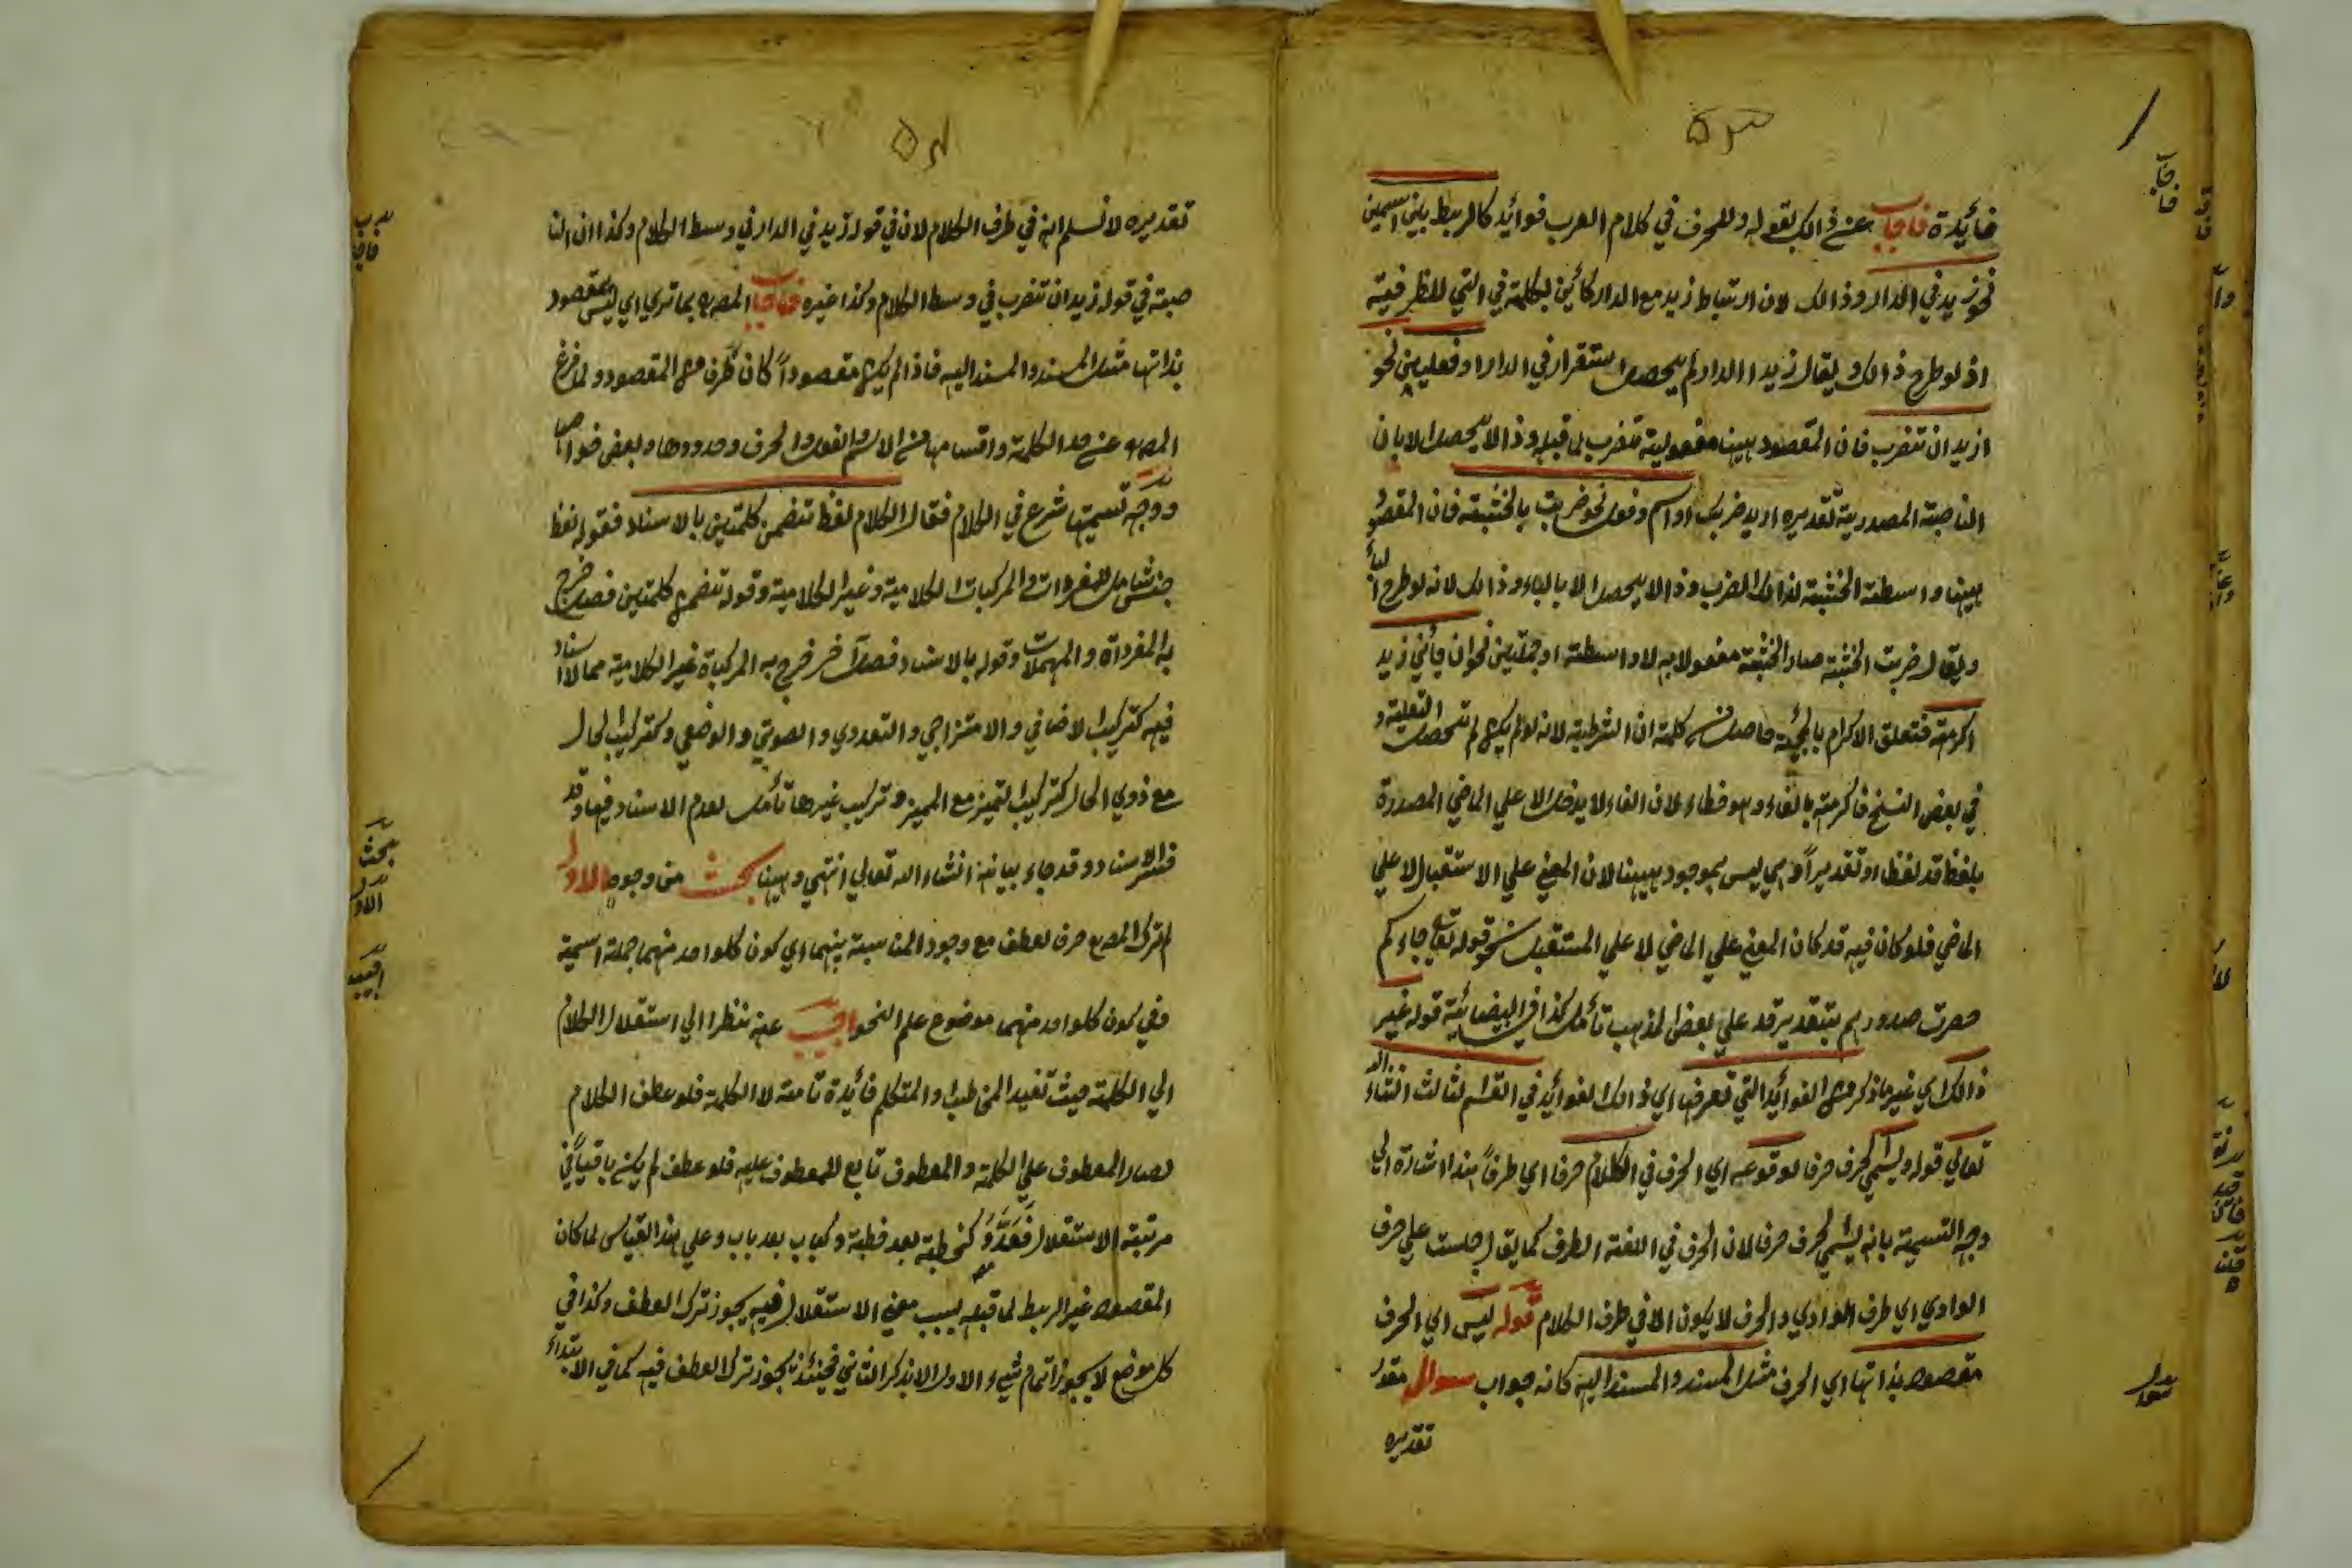 ۵۳
فائدة فاجاب عن ذالك بقوله وللحرف في كلام العرب فوائد كالربط بين اسمين
نحو زيد في الدار وذالك لان ارتباط زيد مع الدار كائن لكلمة في التي للظرفية
اذ لو طرح ذالك ويقال زيد الدار لم يحصل استقرار في الدار او فعلين نحو
اريد ان تضرب فان المقصود ههنا مفعولية تضرب لما قبله وذا لا يحصل الا بان
الناصبة المصدرية تقديره اريد ضربك او اسم وفعل نحو ضربت بالخشبة فان المقصود
ههنا واسطة الخشبة لذالك الضرب وذا لا يحصل الا بالباء وذالك لانه لو طرح الباء
ويقال ضربت الخشبة صار الخشبة مفعولا به لا واسطة او جملتين نحو ان جائني زيد
اكرمته فتعلق الاكرام بالمجيئة حاصل من كلمة ان الشرطية لانه لو لم يكن لم تحصل التعليقة و
في بعض النسخ فاكرمته بالفاء وهو خطاء لان الفاء لا يدخل الا علي الماضي المصدرة
بلفظ قد لفظا او تقديرا وهي ليس بموجود ههنا لان المعني علي الاستقبال لا علي
الماضي فلو كان فيه قد كان المعني علي الماضي لا علي المستقبل نحو قوله تعالي جاءوكم
حصرت صدورهم بتقدير قد علي بعض المذهب تأمل كذا في البيضائية قوله غير
ذالك اي غير ما ذكر من الفوائد التي تعرفها اي ذالك الفوائد في القسم الثالث انشاء الله
تعالي قوله ويسمي الحرف حرفا لوقوعه اي الحرف في الكلام حرفا اي طرفا هذا اشارة الي
وجه التسمية بانه يسمي الحرف حرفا لان الحرف في اللغة الطرف كما يقال جلست علي حرف
الوادي اي طرف الوادي والحرف لا يكون الا في طرف الكلام قوله ليس اي الحرف
مقصودا بذاتها اي الحرف مثل المسند والمسند اليه كانه جواب سوال مقدر
تقديره
سوال
۵۴
تقديره لا نسلم انه في طرف الكلام لان في قوله زيد في الدار في وسط الكلام وكذا ان النا
صبة في قوله زيد ان تضرب في وسط الكلام وكذا غيره فاجاب المصـ بما تري اي ليس بمقصود
بذاتها مثل المسند والمسند اليه فاذا لم يكن مقصودا كان طرف من المقصود ولما فرغ
المصـ عن حد الكلمة واقسامها من الاسم والفعل والحرف وحدودها وبعض خواصها
ووجه تسميتها شرع في الكلام فقال الكلام لفظ تضمن كلمتين بالاسناد فقوله لفظ
جنس شامل للمفردات والمركبات الكلامية وغير الكلامية وقوله تضمن كلمتين فصل خرج
به المفرداة والمهملات وقوله بالاسناد فصل آخر خرج به المركباة غير الكلامية مما لا اسناد
فيه كتركيب الاضافي والامتزاجي والتعددي والصوتي والوضعي وكتركيب الحال
مع ذوي الحال كتركيب التميز مع المميز وتركيب غيرها تأمل لعدم الاسناد فيها وقد
فسر الاسناد وقد جاء بيانه انشاء الله تعالي انتهي وههنا بحث من وجوه الاول
لم ترك المصـ حرف العطف مع وجود المناسبة بينهما اي كون كلواحد منهما جملة اسمية
وفي كون كلواحد منهما موضوع علم النحو اجيب عنه نظرا الي استقلال الكلام
الي الكلمة حيث تفيد المخاطب والمتكلم فائدة تامة لا الكلمة فلو عطف الكلام
لصار المعطوف علي الكلمة والمعطوف تابع للمعطوف عليه فلو عطف لم يكن باقيا في
مرتبة الاستقلال كخطبة بعد خطبة وكباب بعد باب وعلي هذا القياس لما كان
المقصود غير الربط لما قبله بسبب معني الاستقلال فيه يجوز ترك العطف وكذا في
كل موضع لا يجوز اتمام شيء الاول الا بذكر الثاني فحينئذ يجوز ترك العطف فيه كما في الابتداء
بحث
الاول
اجيب